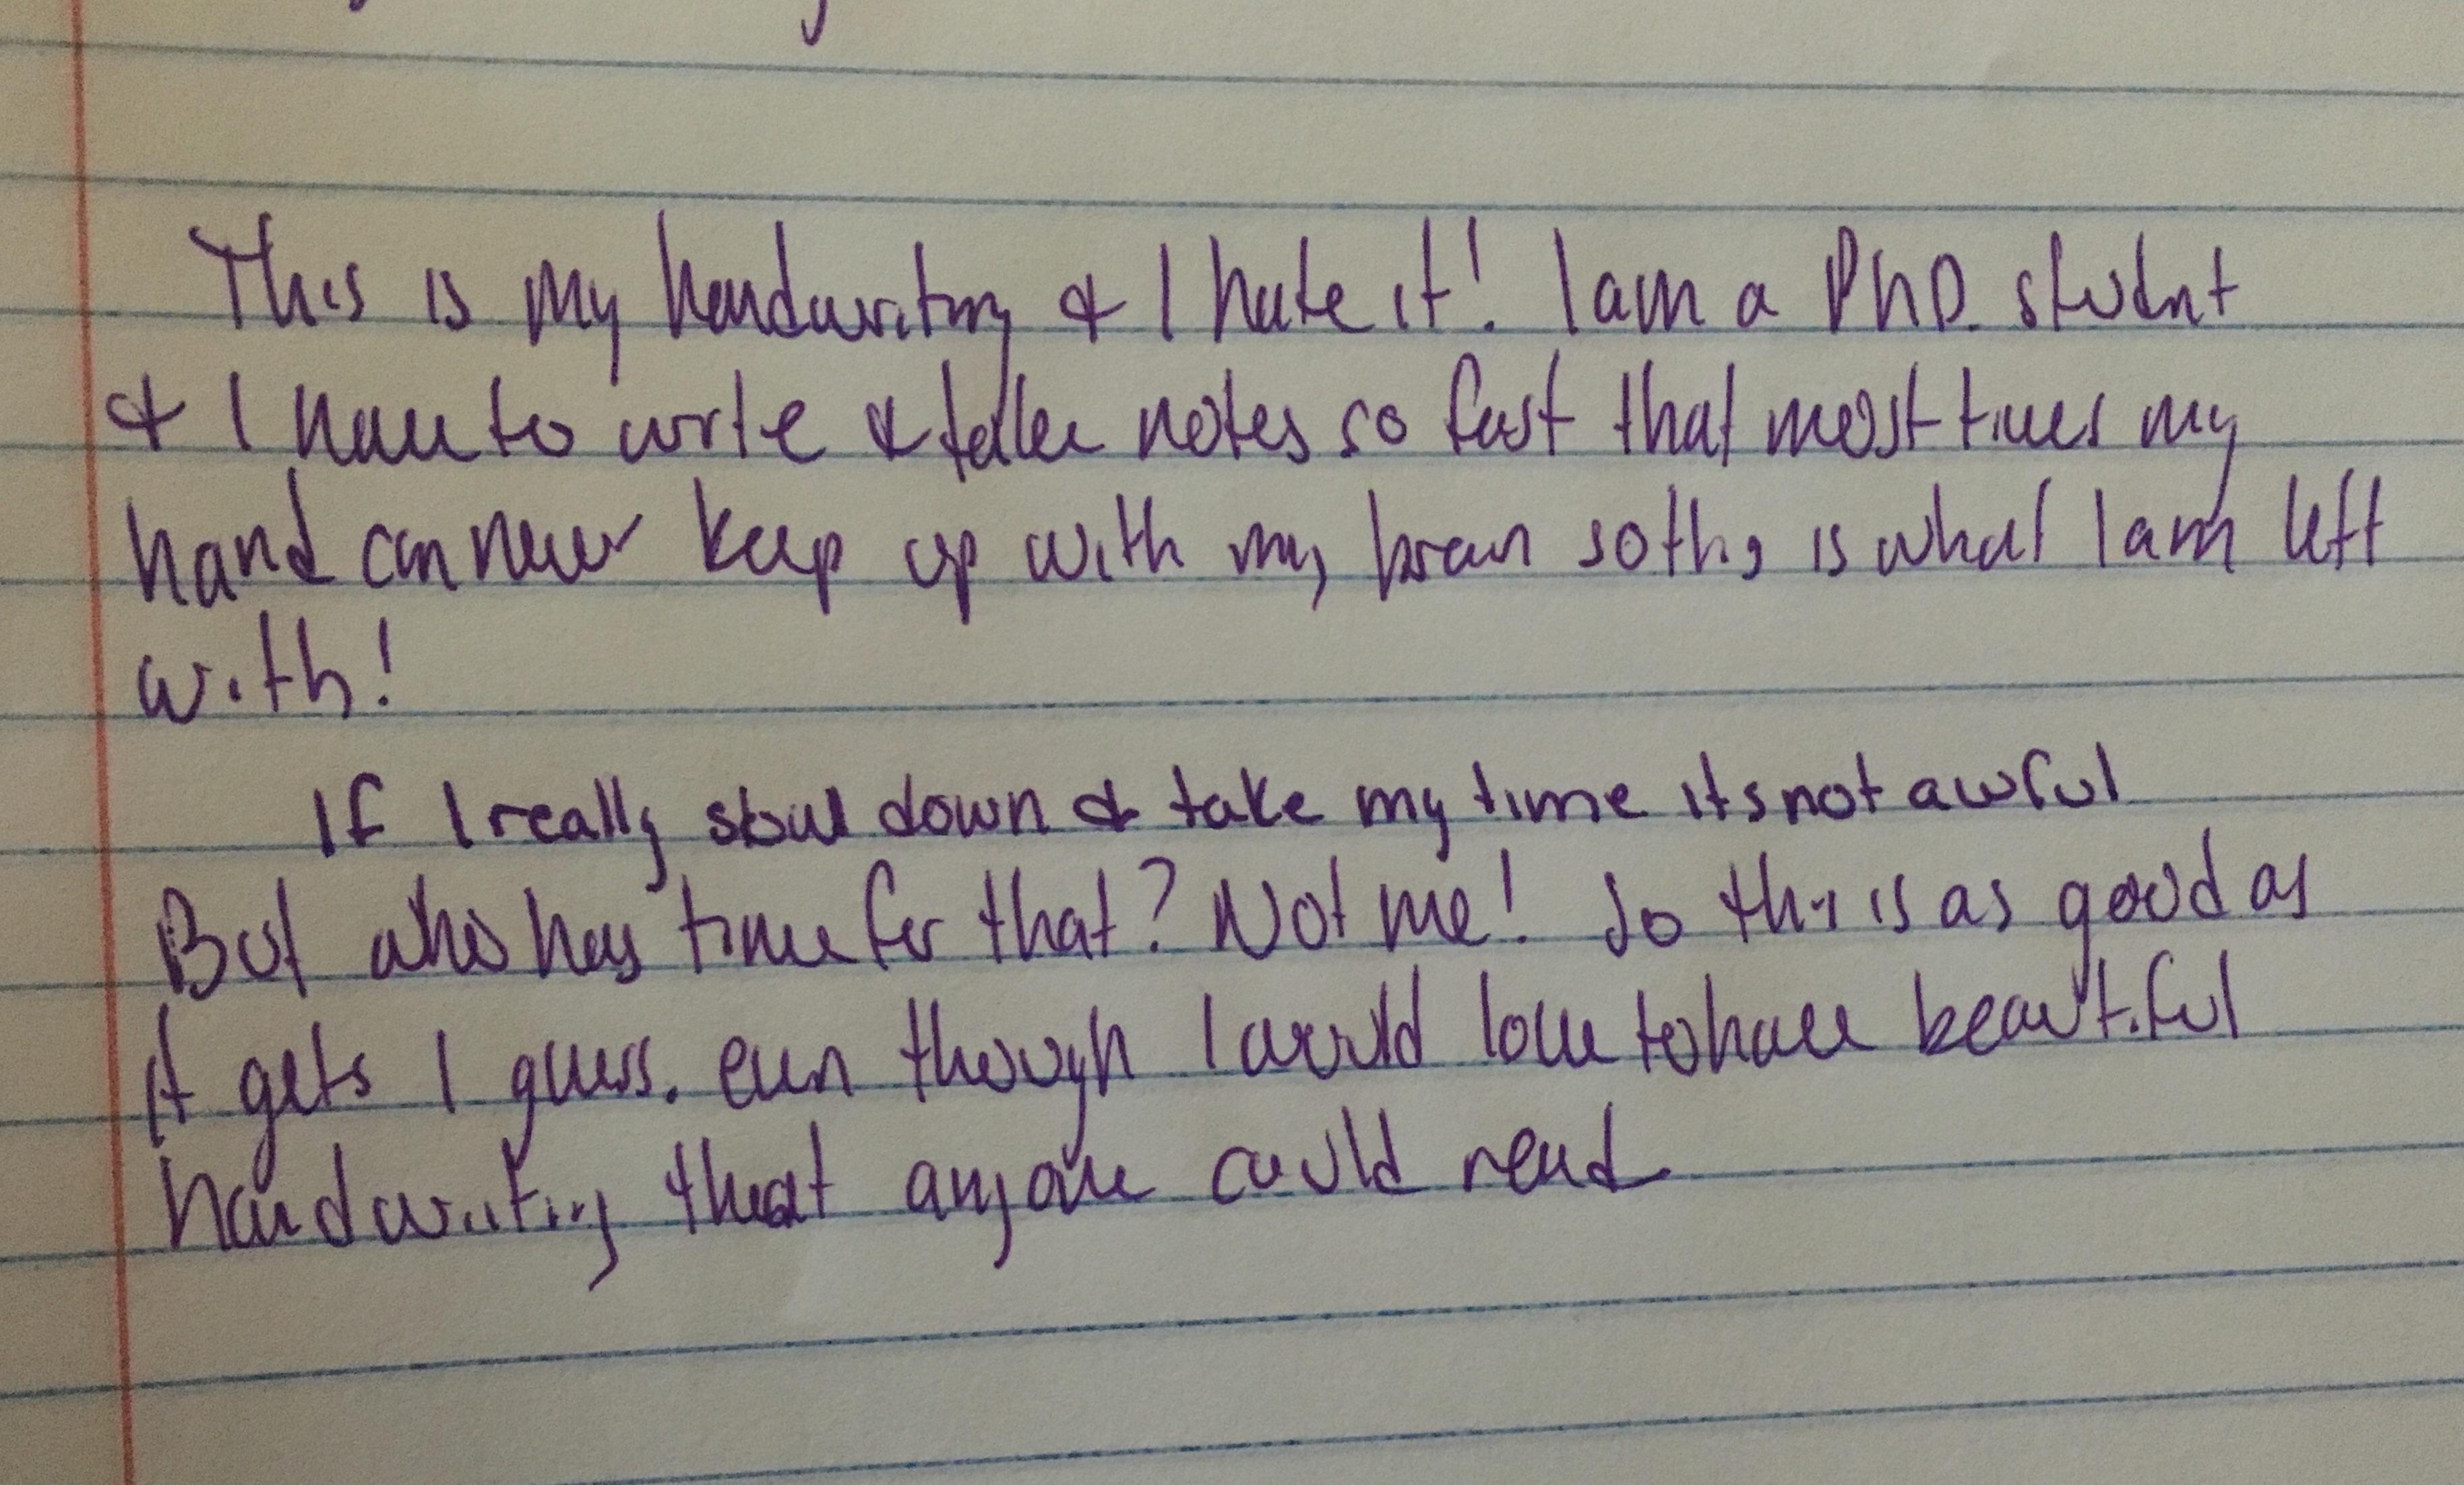 This is my handwriting & I hate it! I am a PhD. student
& I have to write & take notes so fast that most times my
hand can never keep up with my brain so this is what I am left
with!
If I really slow down & take my time its not awful
But who has time for that? Not me! So this is as good as
it gets I guess. even though I would love to have beautiful
handwriting that anyone could read